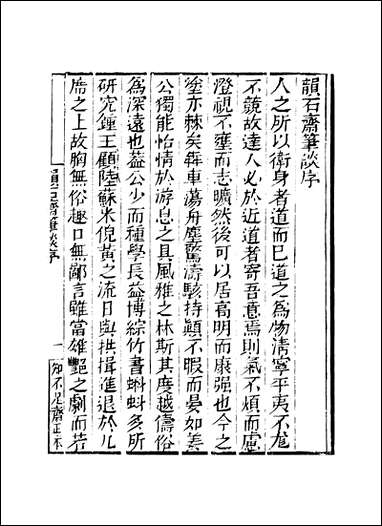 韻石齋筆談序
人之所以衛身者道而已道之爲物清寧平夷不尨
不競故達人必於近道者寄吾意焉則氣不煩而慮
澄視不壅而志曠然後可以居高明而康强也今之
塗亦棘矣犇車蕩舟塵驚濤駭持顚不暇而晏如姜
公獨能怡情於游息之具風雅之林斯其度越儔俗
爲深遠也葢公少而種學長益博綜竹書蝌蚪多所
研究鍾王顧陸蘇米倪黃之流日與拱揖進退於几
席之上故胸無俗趣口無鄙言雖當雄艷之劇而若
韻石齋筆談序
一
知不足齋正本